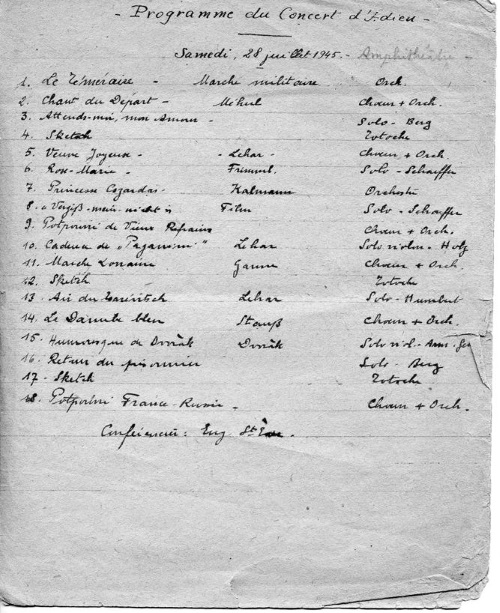 - Programme du Concert d'Adieu -
Samedi, 28 juillet 1945. - Amphithéâtre -
1. Le Téméraire - Marche militaire Orch.
2. Chant du Départ - Méhul Chœur + Orch.
3. Attends-moi, mon Amour - Solo - Berg
4. Sketch Totoche
5. Veuve Joyeuse - - Lehar - Chœur + Orch.
6. Rose-Marie - Frimml. Solo - Schaeffer
7. Princesse Czardas - Kalmann Orchestre
8. "Vergiß-mein-nicht" Film Solo - Schaeffer
9. Potpourri de Vieux Refrains Chœur + Orch.
10. Cadenza de "Paganini" Lehar Solo violon - Holz
11. Marche Lorraine Ganne Chœur + Orch.
12. Sketch Totoche
13. Air du Zarévitsch Lehar Solo - Humbert
14. Le Danube bleu Stauß Chœur + Orch.
15. Humoresque de Dvořák Dvořák Solo viol.
16. Retour du prisonnier Solo - Berg
17. Sketch Totoche
18. Potpourri France-Russie - Chœur + Orch.
Conférencier: Eug.